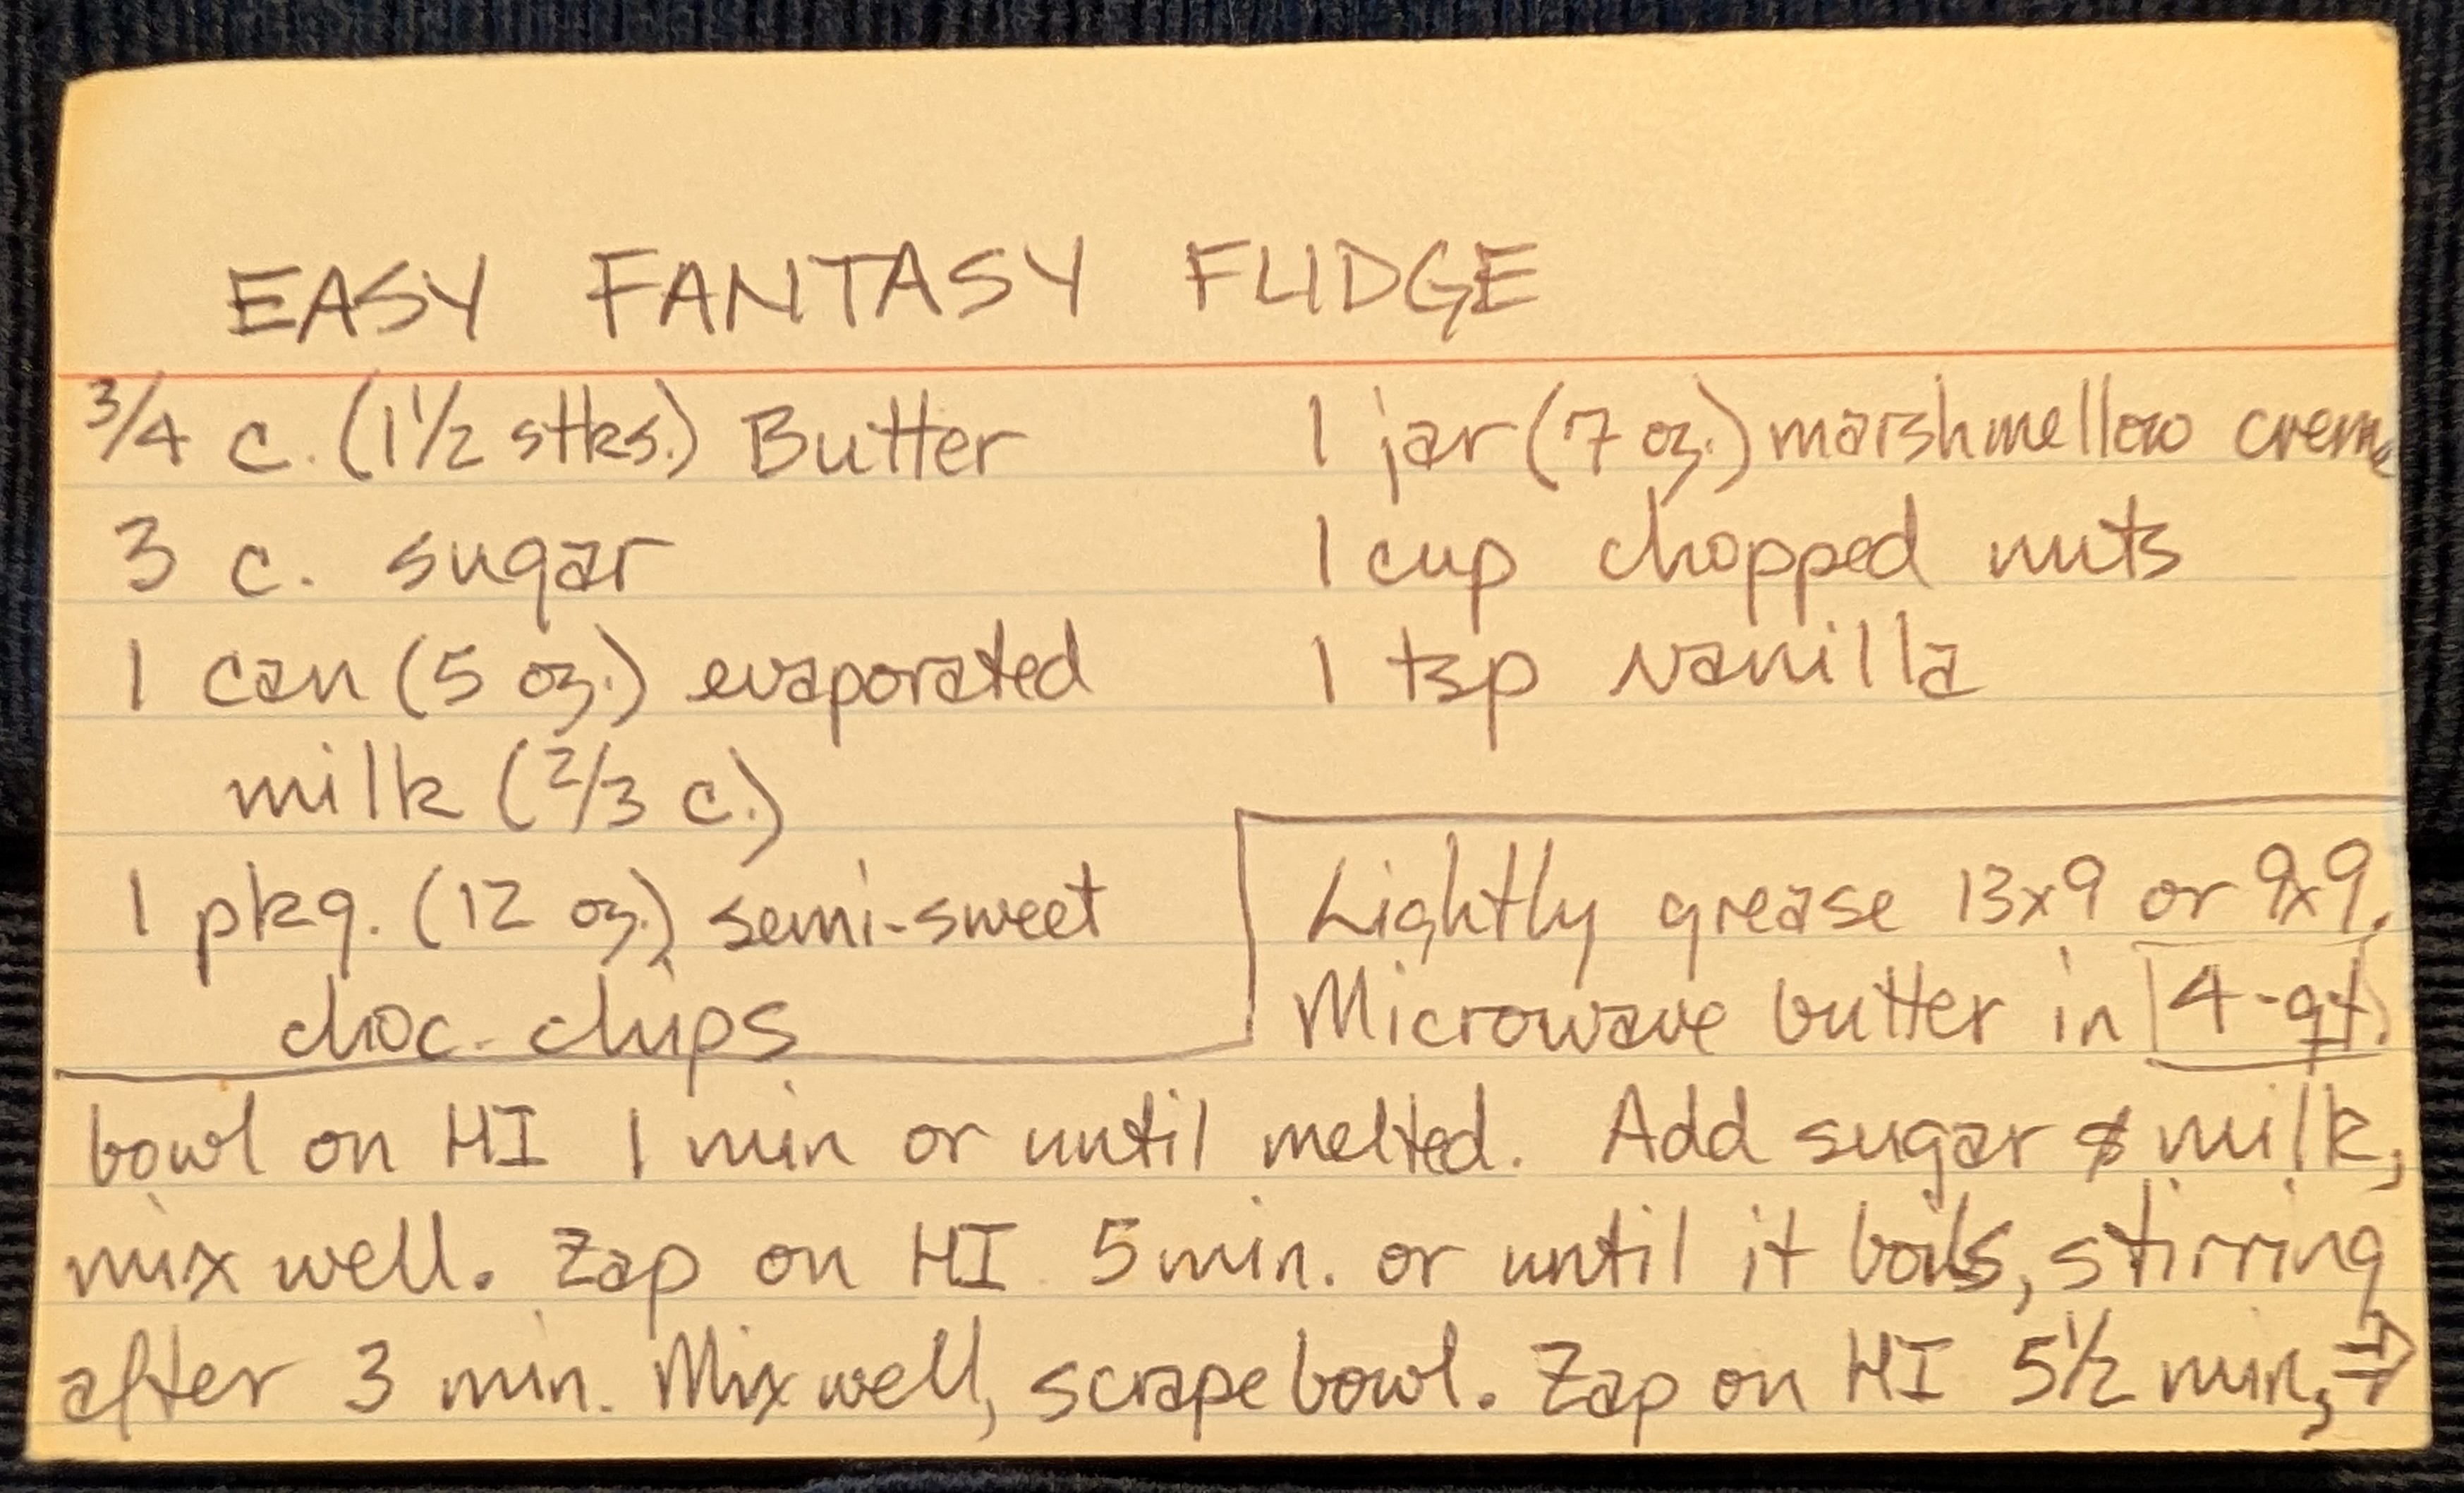 EASY FANTASY FUDGE
3/4 c. (1 1/2 stks.) Butter
3 c. sugar
1 can (5 oz.) evaporated
milk (2/3 c.)
1 pkg. (12 oz.) semi-sweet
choc. chips
1 jar (7 oz.) marshmellow creme
1 cup chopped nuts
1 tsp vanilla
Lightly grease 13x9 or 9x9.
Microwave butter in 4-qt.
bowl on HI 1 min or until melted. Add sugar & milk,
mix well. Zap on HI 5 min. or until it boils, stirring
after 3 min. Mix well, scrape bowl. Zap on HI 5 1/2 min, ⇒